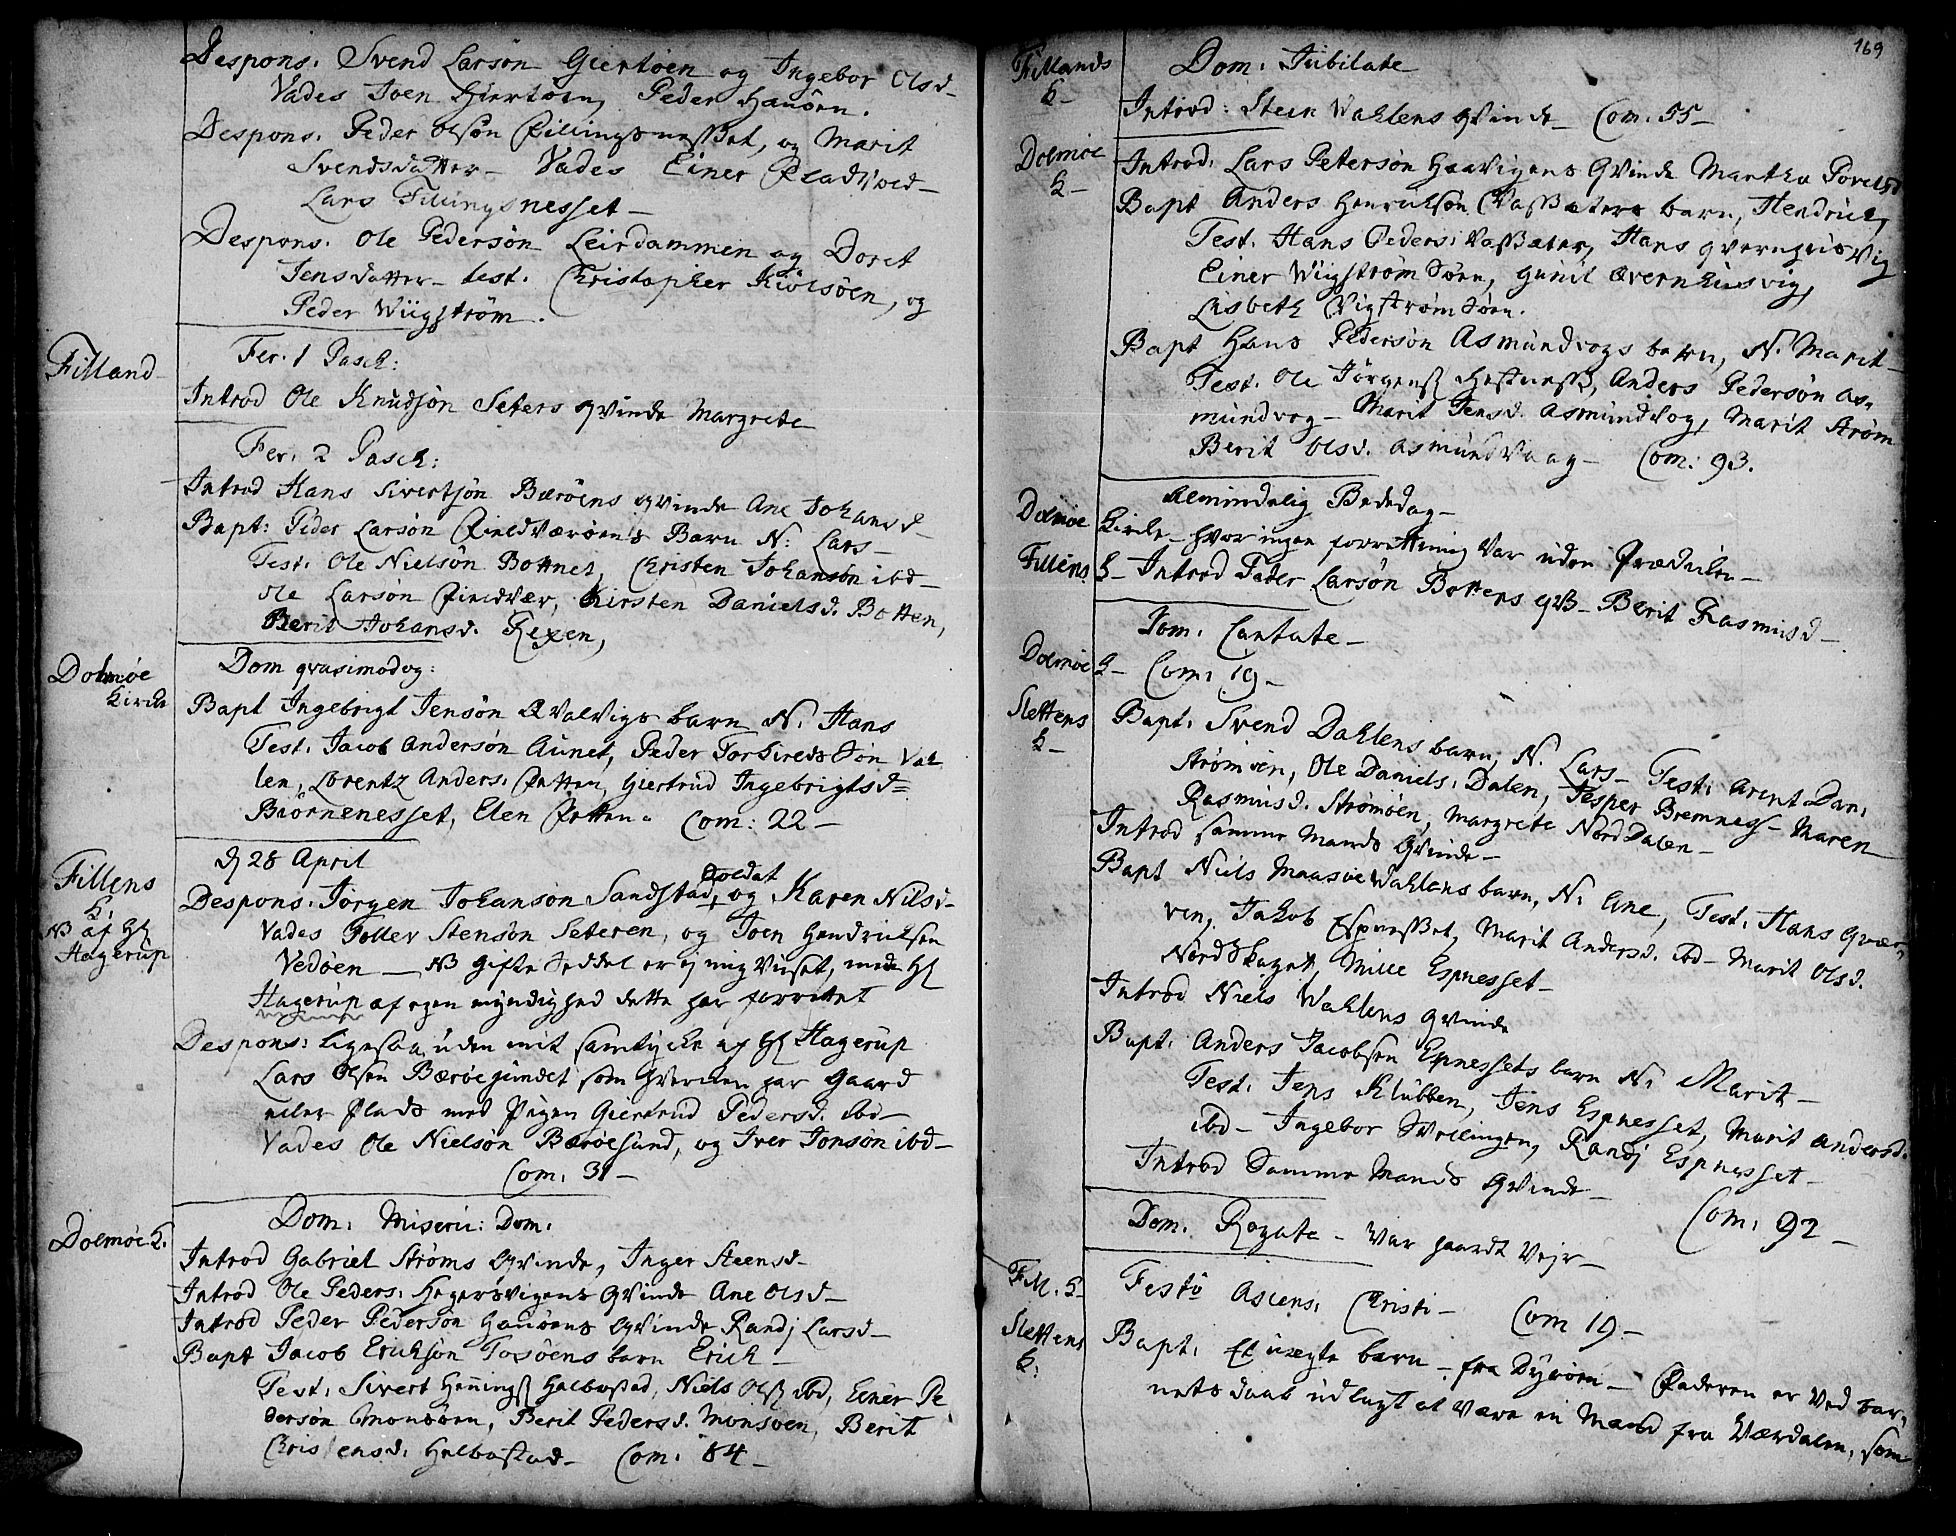 Despons. Svend Larsøn Giertøen og Ingebor Olsd
Vades Joen Hiertøen, Peder Hauøen.
Despons. Peder Olsøn Fillingsnesset, og Marit
Svendsdatter – Vades Einer Pladvold –
Lars Fillingsnesset –
Despons. Ole Pedersøn Leirdammen og Doret
Jensdatter – test. Christopher Kiølsøen, og
Peder Wiigstrøm.
Filland
Fer. 1 Pasch:
Introd Ole Knudsøn Seters qvinde Margrete
Fer. 2 Pasch:
Introd Hans Sivertsøn Bærøens qvinde Ane Johansd –
Bapt: Peder Larsøn Fieldværøens Barn N: Lars –
Test: Ole Nielsøn Bottnet, Christen Johansøn ibd –
Ole Larsøn Fieldvær, Kirsten Danielsd. Botten,
Berit Johansd. Rexen,
Dolmøe
Kirche
Dom qvasimodog:
Bapt Ingebrigt Jensøn Qvalvigs barn N. Hans
Test. Jacob Andersøn Aunet, Peder Torkildssøn Val
len, Lorentz Anders. Fetten, Giertrud Ingebrigtsd=
Biørnenesset, Elen Fetten. Com: 22 –
Fillens
K.
NB af Hr
Hagerup
d 28 April
Despons. Jørgen Johansøn Sandstad, soldat og Karen Nilsd –
Vades Toller Stensøn Seteren, og Joen Hendrichsen
Vedøen — NB gifte Seddel er ej mig viiset, mens Hr
Hagerup af egen myndighed dette har forrettet
Despons: ligesaa uden mit samtycke af Hr Hagerup
Lars Olsen Bærøesundet som hverken har Gaard
eller Plads med Pigen Giertrud Pedersd. ibd –
Vades Ole Nielsøn Bærøesund, og Iver Jonsøn ibd –
Com. 31 –
Dolmøe K.
Dom. Miseric: Dom.
Introd Gabriel Strøms Qvinde, Inger Steensd –
Introd Ole Peders. Hegersvigens Qvinde Ane Olsd –
Introd Peder Pedersøn Hauøens Qvinde Randj Larsd –
Bapt Jacob Erichsøn Tosøens barn Erich –
Test: Sivert Hennings Halbostad, Niels Ols ibd, Einer Pe
dersøn Monsøen, Berit Pedersd. Monsøen, Berit
Christensd. Halbostad – Com. 84 –
169
Fillands
K –
Dom. Jubilate
Introd: Steen Wahlens qvinde – Com. 55 –
Dolmøe
K –
Introd. Lars Petersøn Haavigens Qvinde Martha Povelsd
Bapt Anders Henrichsøn Vassæters barn, Hendrich,
Test. Hans Peders. Vassæter, Hans Qvernhusvig
Einer Wiigstrøm Søen, Gunil Qvernhusvig,
Lisbeth Vigstrøm Søen.
Bapt Hans Pedersøn Asmundvogs barn, N. Marit –
Test. Ole Jørgens Hestness, Anders Pedersøn As=
mundvog – Marit Jensd. Asmundvog, Marit Strøm
Berit Olsd. Asmundvaag – Com: 93.
Dolmøe
Almindelig Bededag –
Kirche – hvor ingen forretning var uden Prædiken –
Fillens K – Introd Peder Larsøn Bottens qv – Berit Rasmusd –
Dom. Cantate –
Dolmøe K – Com: 19 –
Slettens
K –
Bapt. Svend Dahlens barn, N. Lars – Test. Arent Dan.
Strømøen, Ole Daniels. Dalen, Jesper Bremnes – Maren
Rasmusd. Strømøen, Margrete NordDalen –
Introd samme Mands Qvinde –
Bapt Niels Maasøe Wahlens barn, N. Ane, Test. Hans Qvær
ven, Jakob Espnesset, Marit Andersd. ibd – Marit Olsd.
NordSkaget, Mille Espnesset –
Introd Niels Wahlens qvinde
Bapt. Anders Jacobsøn Espnessets barn N. Marit –
Test. Jens Klubben, Jens Espnesset, Marit Andersd.
ibd – Ingebor Svellingen, Randj Espnesset –
Introd Samme Mands Qvinde –
Com. 92 –
Dom. Rogate – Var haardt Vejr –
Fill. K –
Festo Ascens. Christi – Com 19 –
Slettens
K.
Bapt. Et uægte barn – fra Dyrøen – Faderen er ved bar=
nets daab udlagt at være en Mand fra Værdalen, som